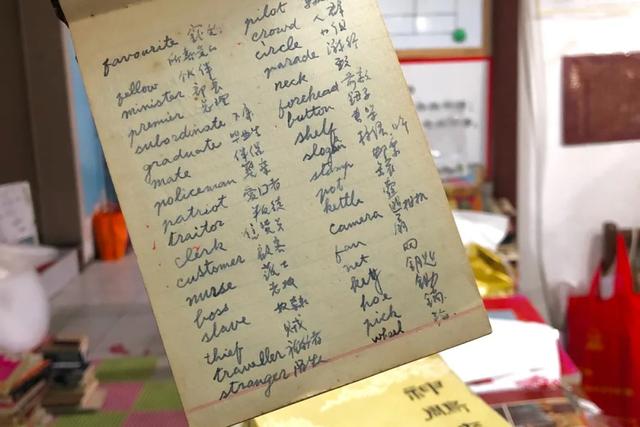 favourite
所喜爱的
fellow 伙伴
minister 部长
premier 总理
subordinate 下属
graduate 毕业生
mate 伴侣
policeman 警察
patriot 爱国者
traitor 叛徒
clerk
customer 顾客
nurse 护士
boss 老板
slave 奴隶
thief 贼
traveller 旅行者
stranger 陌生
pilot
crowd 人群
circle
parade 游行
neck 颈
forehead 前额
button 钮子
shelf 书架
slogan 标语
stamp 邮票
pot 壶
kettle
camera 照相机
fan 扇
net 网
key 钥匙
hoe 锄
pick 镐
wheel 轮